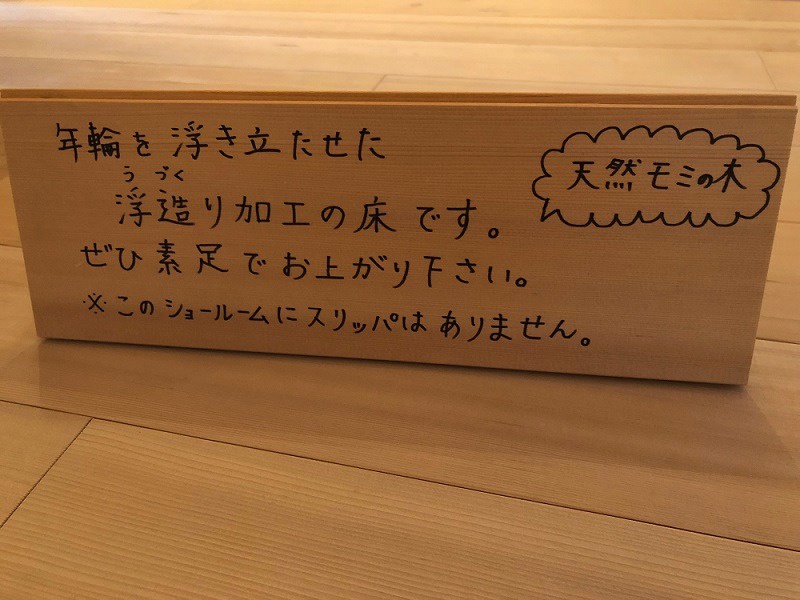 年輪を浮き立たせた
うづく
浮造り加工の床です。
ぜひ素足でお上がり下さい。
※このショールームにスリッパはありません。
天然モミの木